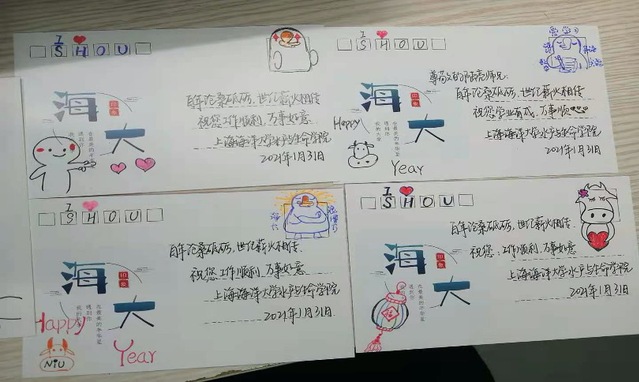 I
SHOU
海大
印象
百年沧桑砥砺,世纪薪火相传
祝您工作顺利,万事如意
上海海洋大学水产与生命学院
2021年1月31日
I
SHOU
海大
印象
百年沧桑砥砺,世纪薪火相传
祝您学业有成,万事顺
上海海洋大学水产与生命学院
2021年1月31日
Happy
Year
I
SHOU
海大
印象
百年沧桑砥砺,世纪薪火相传
祝您工作顺利,万事如意
上海海洋大学水产与生命学院
2021年1月31日
Happy
NiU
Year
I
SHOU
海大
印象
百年沧桑砥砺,世纪薪火相传
祝您:工作顺利,万事如意
上海海洋大学水产与生命学院
2021年1月31日